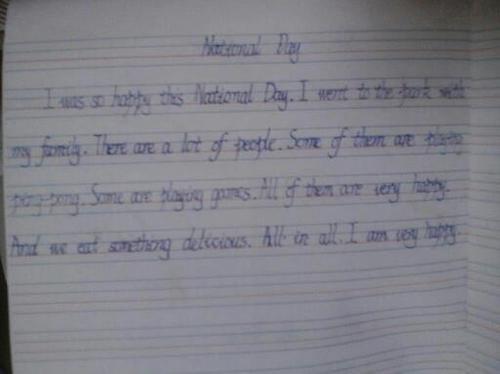 National Day
I was so happy this National Day. I went to the park with
my family. There are a lot of people. Some of them are playing
ping-pong. Some are playing games. All of them are very happy.
And we eat something delicious. All in all. I am very happy.